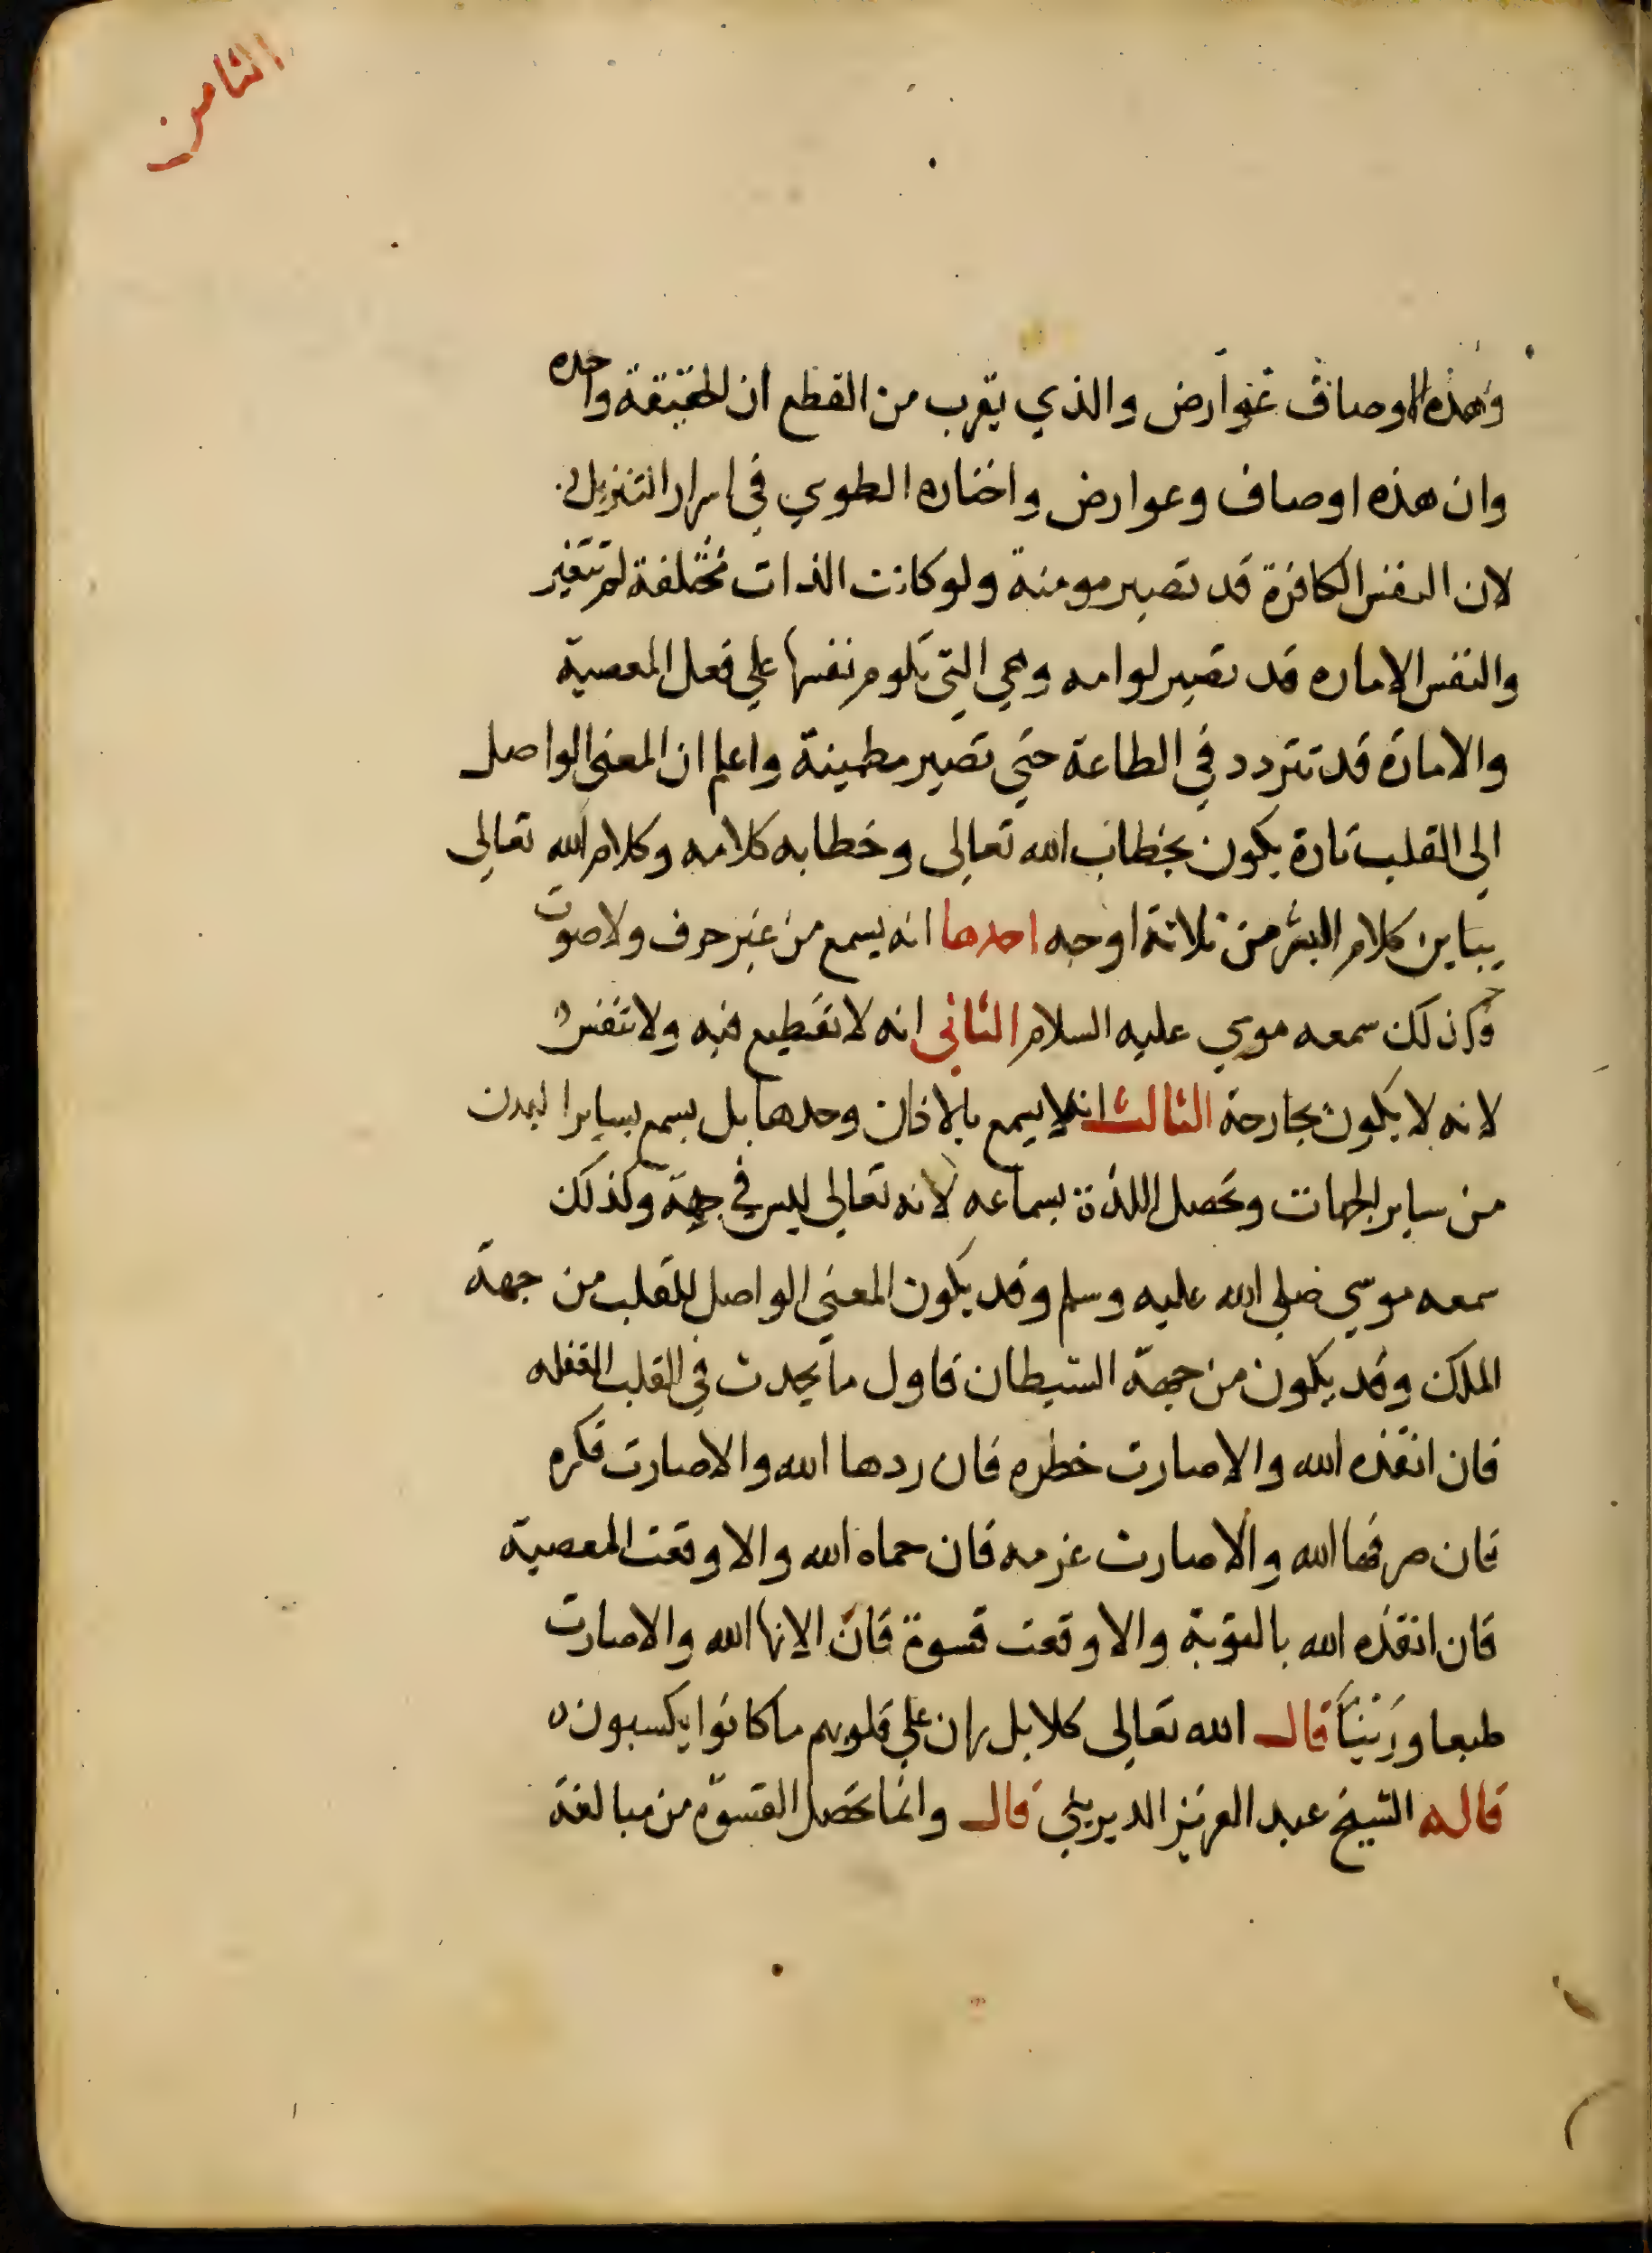 الثامن
وهذه الاوصاف عوارض والذي يقرب من القطع ان الحقيقة واحده
وان هذه اوصاف وعوارض واختاره الطوسي في اسرار التنزيل
لان النفس الكافرة قد تصير مومنة ولو كانت الذات مختلفة لم تتغير
والنفس الاماره قد تصير لوامه وهي التي تلوم نفسها علي فعل المعصية
والامارة قد تتردد في الطاعة حتي تصير مطمينة واعلم ان المعنى الواصل
الي القلب تارة يكون بخطاب الله تعالى وخطابه كلامه وكلام الله تعالى
يباين كلام البشر من ثلاثة اوجه احدها انه يسمع من غير حرف ولا صوت
وكذلك سمعه موسي عليه السلام الثاني انه لا تقطيع فيه ولا تنفس
لانه لا يكون بجارحة الثالث انه لا يسمع بالاذان وحدها بل يسمع بساير البدن
من ساير الجهات وتحصل اللذة بسماعه لانه تعالي ليس في جهة وكذلك
سمعه موسي صلي الله عليه وسلم وقد يكون المعني الواصل للقلب من جهة
الملك وقد يكون من جهة الشيطان فاول ما يحدث في القلب الغفله
فان انقذه الله والا صارت خطره فان ردها الله والا صارت فكره
فان صرفها الله والا صارت عزمه فان حماه الله والا وقعت المعصية
فان انقذه الله بالتوبة والا وقعت قسوة فان الانها الله والا صارت
طبعا ورينا قال الله تعالى كلا بل ران علي قلوبهم ما كانوا يكسبون
قاله الشيخ عبد العزيز الديريني قال وانما تحصل القسوة من مبالغة